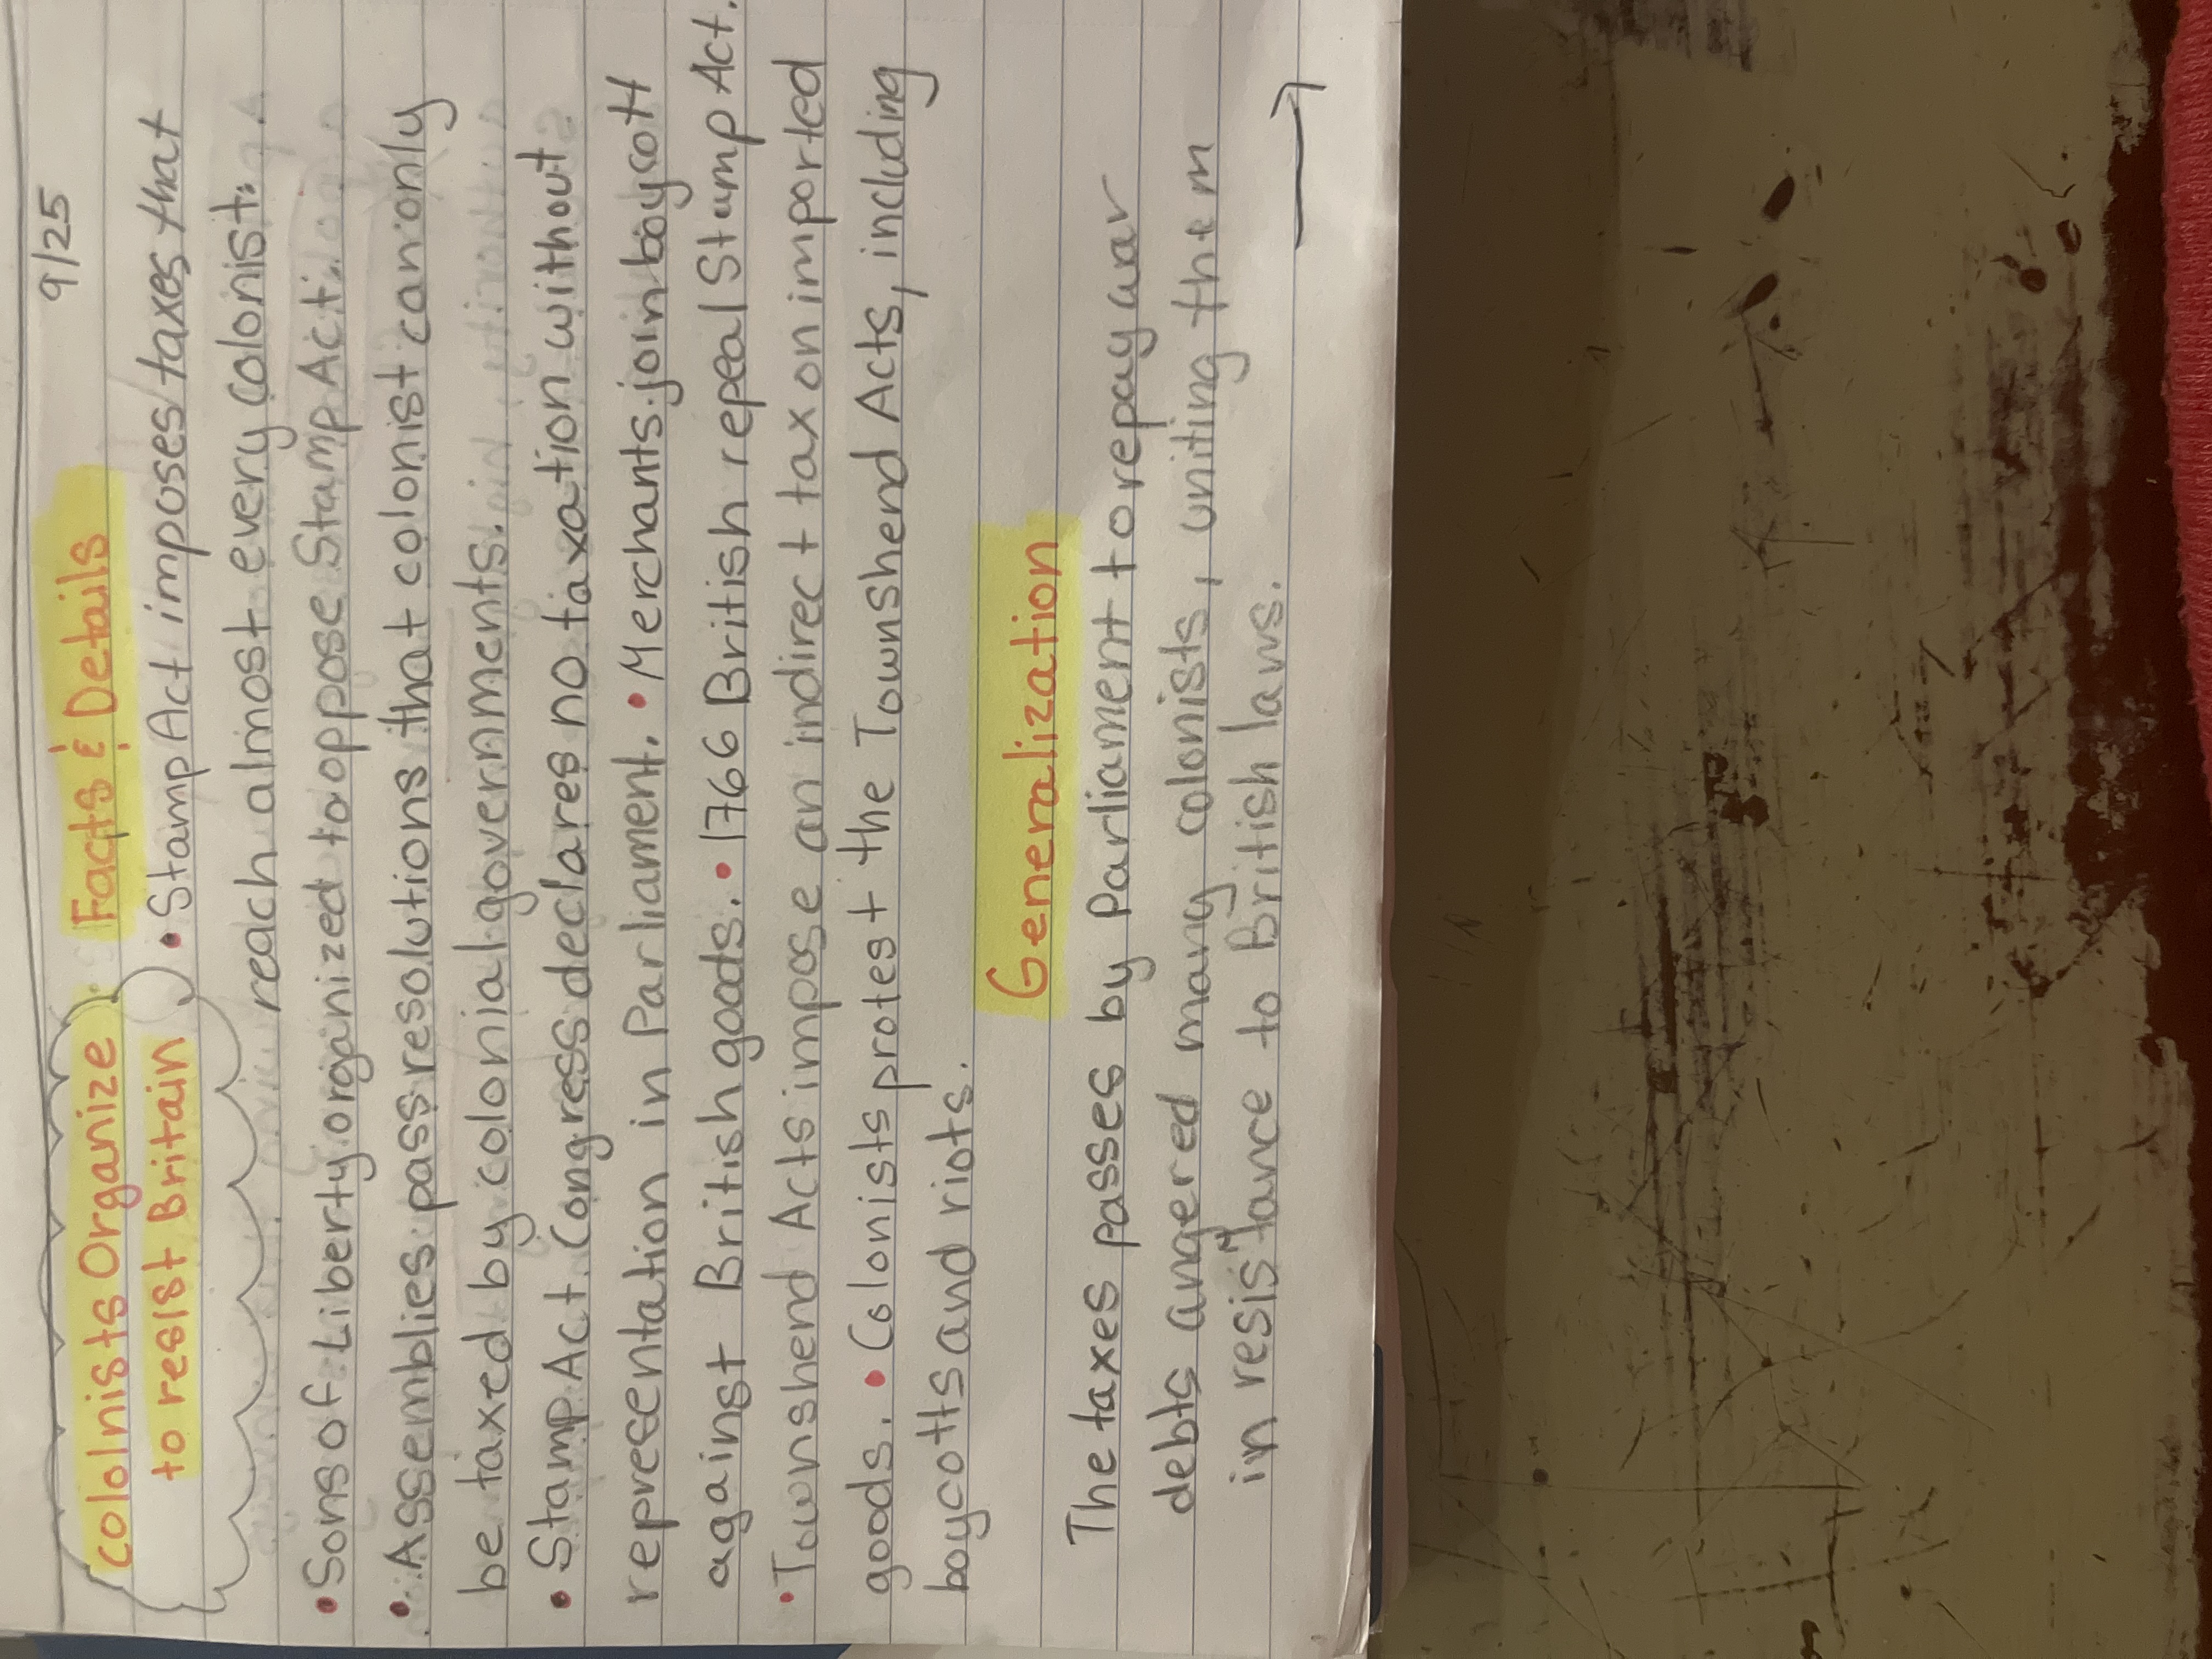 9/25
Cololnists Organize
to resist Britain
Facts & Details
• Stamp Act imposes taxes that
reach almost every colonist.
• Sons of Liberty organized to oppose Stamp Act.
• Assemblies pass resolutions that colonist can only
be taxed by colonial governments.
• Stamp Act Congress declares no taxation without
representation in Parliament. • Merchants join boycott
against British goods. • 1766 British repeal Stamp Act.
• Townshend Acts impose an indirect tax on imported
goods. • Colonists protest the Townshend Acts, including
boycotts and riots.
Generalization
The taxes passes by Parliament to repay war
debts angered many colonists, uniting them
in resistance to British laws.